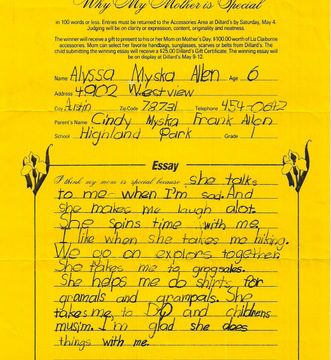 Why My Mother is Special
in 100 words or less. Entries must be returned to the Accessories Area at Dillard's by Saturday, May 4.
Judging will be on clarity or expression, content, originality and neatness.
The winner will receive a gift to present to his or her Mom on Mother's Day: $100.00 worth of Liz Claiborne
accessories. Mom can select her favorite handbags, sunglasses, scarves or belts from Dillard's. The
child submitting the winning essay will receive a $25.00 Dillard's Gift Certificate. The winning essay will
be on display at Dillard's May 9-12.
Name Alyssa Myska Allen Age 6
Address 4902 Westview
City Austin Zip Code 78731 Telephone 454-0612
Parent's Name Cindy Myska Frank Allen
School Highland Park Grade 1
Essay
I think my mom is special because she talks
to me when I'm sad. And
she makes me laugh alot.
She spins time with me.
I like when she takes me hiking.
We go on explors together.
She takes me to grggsales.
She helps me do shirts for
gramals and grampals. She
takes me to DQ and childrens
musim. I'm glad she does
things with me.